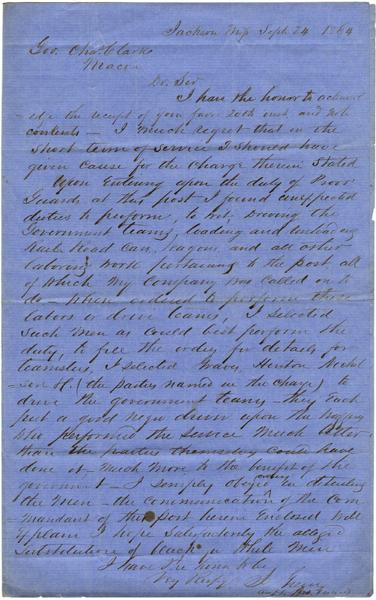 Jackson Mip Sept 24 1864
Gov. Chas. Clark
Macon
Dr. Sir
I have the honor to acknowl
edge the receipt of your favor 20th inst and note
contents — I much regret that in the
short term of service I should have
given cause for the charge therein stated
Upon Entering upon the duty of Provo
Guards at this post I found unexpected
duties to perform, to wit, Driving the
Government teams, loading and unloading
Rail Road Cars, wagons and all other
laboring work pertaining to the post all
of which my Company was called on to
do — when ordered to perform these
labors or drive teams, I selected
such men as could best perform the
duty, to fill the orders for details for
teamsters, I selected Graves, Henton
H. (the parties named in the charge) to
drive the government teams — they Each
put a good negro driver upon the wagons
who performed the service much better
than the parties themselves could have
done it — much more to the benefit of the
government — I simply obeyed orders in detailing
the men — the communication of the Com
mandant of this Post herein Enclosed will
Explain I hope satisfactorily the alleged
substitution of Black for White Men
I have the honor to be
Very Respy